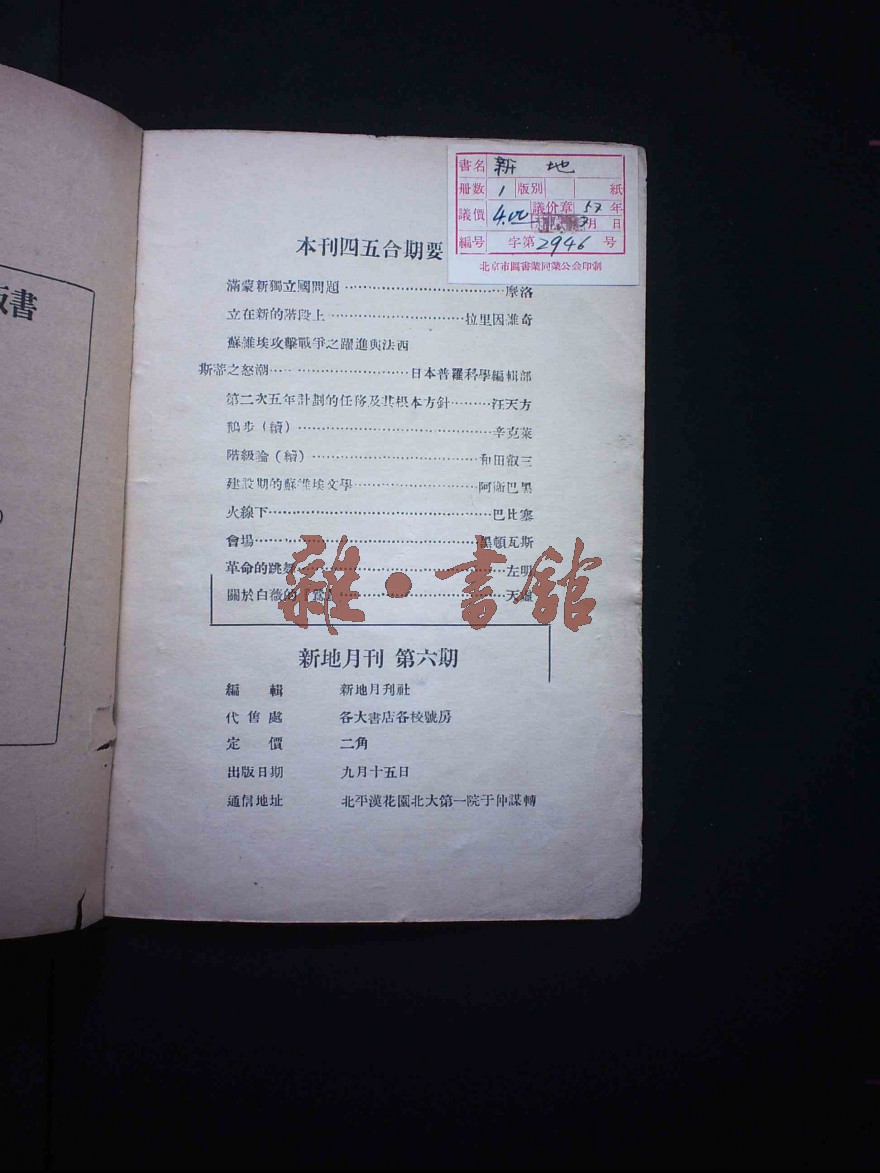 書
書名 新 地
册数 1 版別 紙
議價 4.00 議价章 57年
月 日
編号 字第2946号
北京市圖書業同業公会印制
本刊四五合期要
滿蒙新獨立國問題……………………………摩洛
立在新的階段上………………………拉里因維奇
蘇維埃攻擊戰爭之躍進與法西
斯蒂之怒潮………………………日本普羅科學編輯部
第二次五年計劃的任務及其根本方針………汪天方
鵝步（續）…………………………………辛克萊
階級論（續）………………………………和田叡三
建設期的蘇維埃文學……………………阿斯巴黑
火線下………………………………………巴比塞
會場…………………………………………黑頓瓦斯
革命的跳舞…………………………………左明
關於白薇的……………………………天
雜·書館
新地月刊 第六期
編輯 新地月刊社
代售處 各大書店各校號房
定價 二角
出版日期 九月十五日
通信地址 北平漢花園北大第一院于仲謀轉